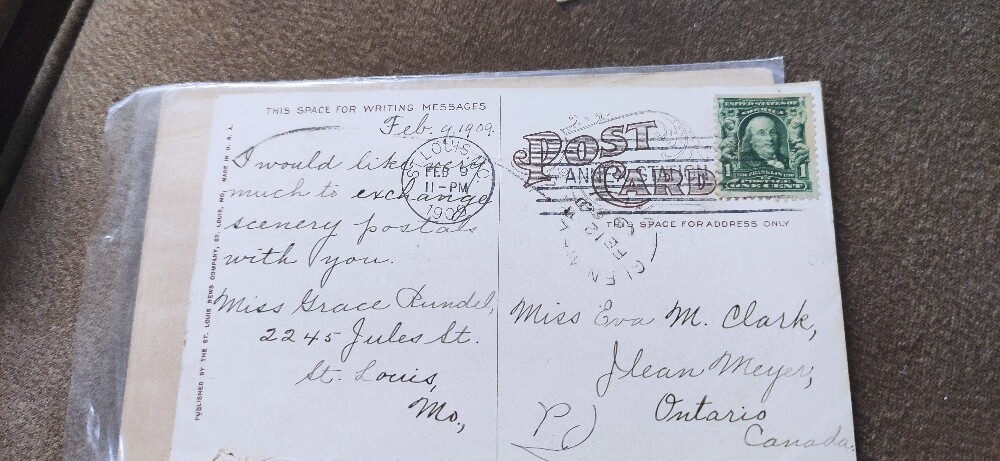 THIS SPACE FOR WRITING MESSAGES
Feb. 9, 1909.
I would like very
much to exchange
scenery postals
with you.
Miss Grace Rundel,
2245 Jules St.
St. Louis,
Mo.,
PUBLISHED BY THE ST. LOUIS NEWS COMPANY, ST. LOUIS, MO. MADE IN U. S. A.
ST. LOUIS, MO.
FEB 9
11-PM
1909
POST
CARD
ANNEX STA
UNITED STATES OF
AMERICA
1 FRANKLIN 1
POSTAGE
ONE CENT
FE 12
THIS SPACE FOR ADDRESS ONLY
Miss Eva M. Clark,
Glean Meyer,
Ontario
Canada.